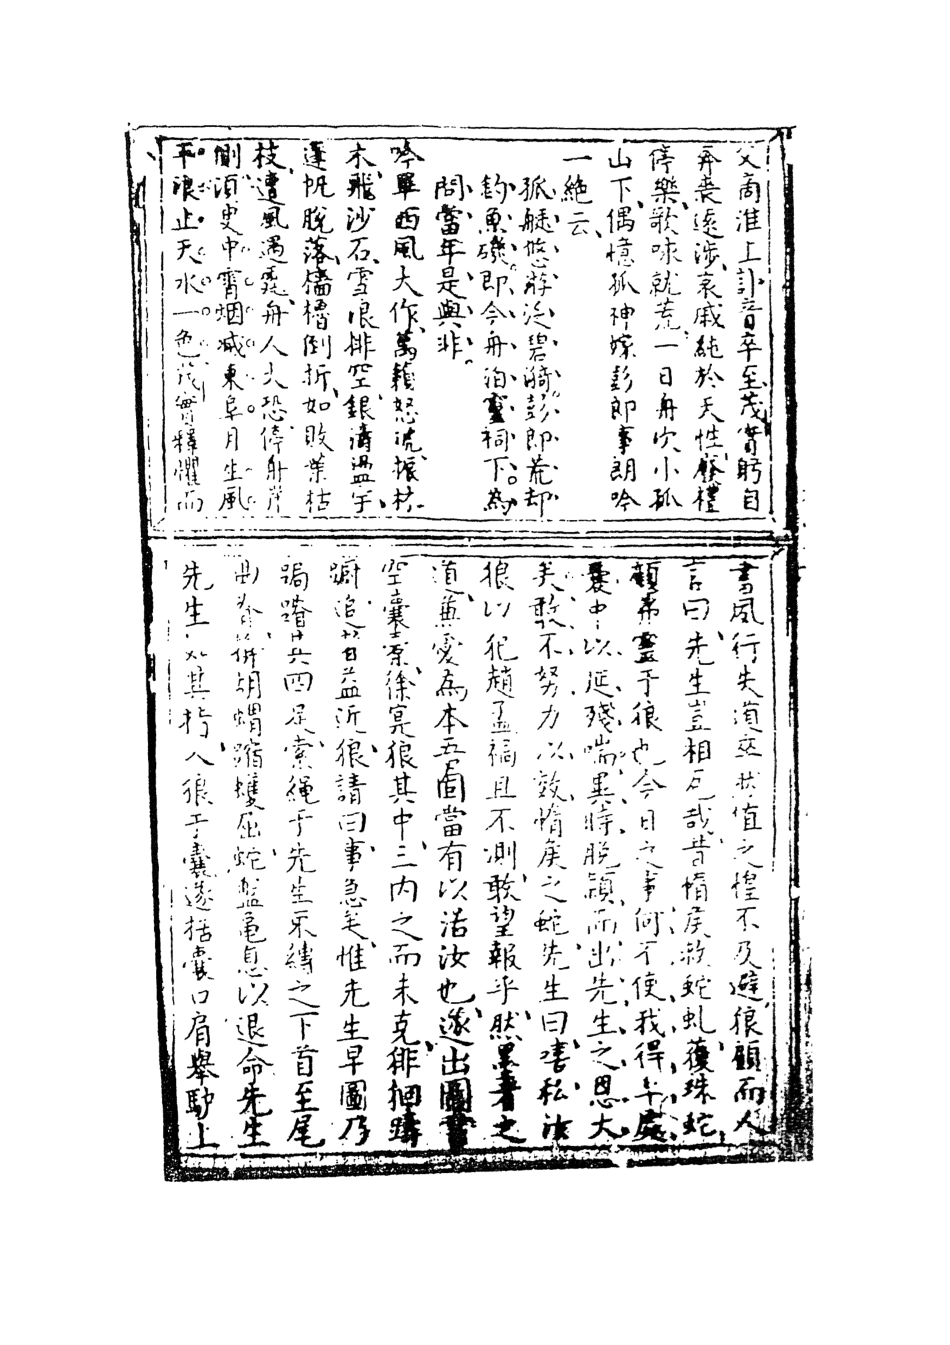 父商淮上訃音卒至茂實躬自
奔喪遠涉哀戚純於天性廢禮
停樂歌咏就荒一日舟次小孤
山下偶憶孤神嫁彭郎事朗吟
一絶云
孤艇悠游泛碧漪彭郎荒却
釣魚磯即今舟泊靈祠下為
問當年是與非
吟畢西風大作萬籟怒號振林
木飛沙石雪浪排空銀濤溢岸
篷帆脫落檣櫓倒折如敗葉枯
枝遭風遇霰舟人大恐停舟岸
側須臾中霄烟滅東阜月生風
平浪止天水一色茂實釋懼而
書風行失道卒然值之惶不及避狼顧而人
言曰先生豈相厄哉昔惰矦救蛇虬獲珠蛇
顧弗靈于狼也今日之事何不使我得早處
囊中以延殘喘異時脫穎而出先生之恩大
矣敢不努力以效惰矦之蛇先生曰嘻私汝
狼以犯趙孟禍且不測敢望報乎然墨者之
道兼愛為本吾固當有以活汝也遂出圖書
空囊橐徐寘狼其中三內之而未克徘徊躊
躕追者益近狼請曰事急矣惟先生早圖乃
跼蹐其四足索繩于先生束縛之下首至尾
曲脊掩胡蝟縮蠖屈蛇盤龜息以退命先生
先生如其指入狼于囊遂括囊口肩舉馿上